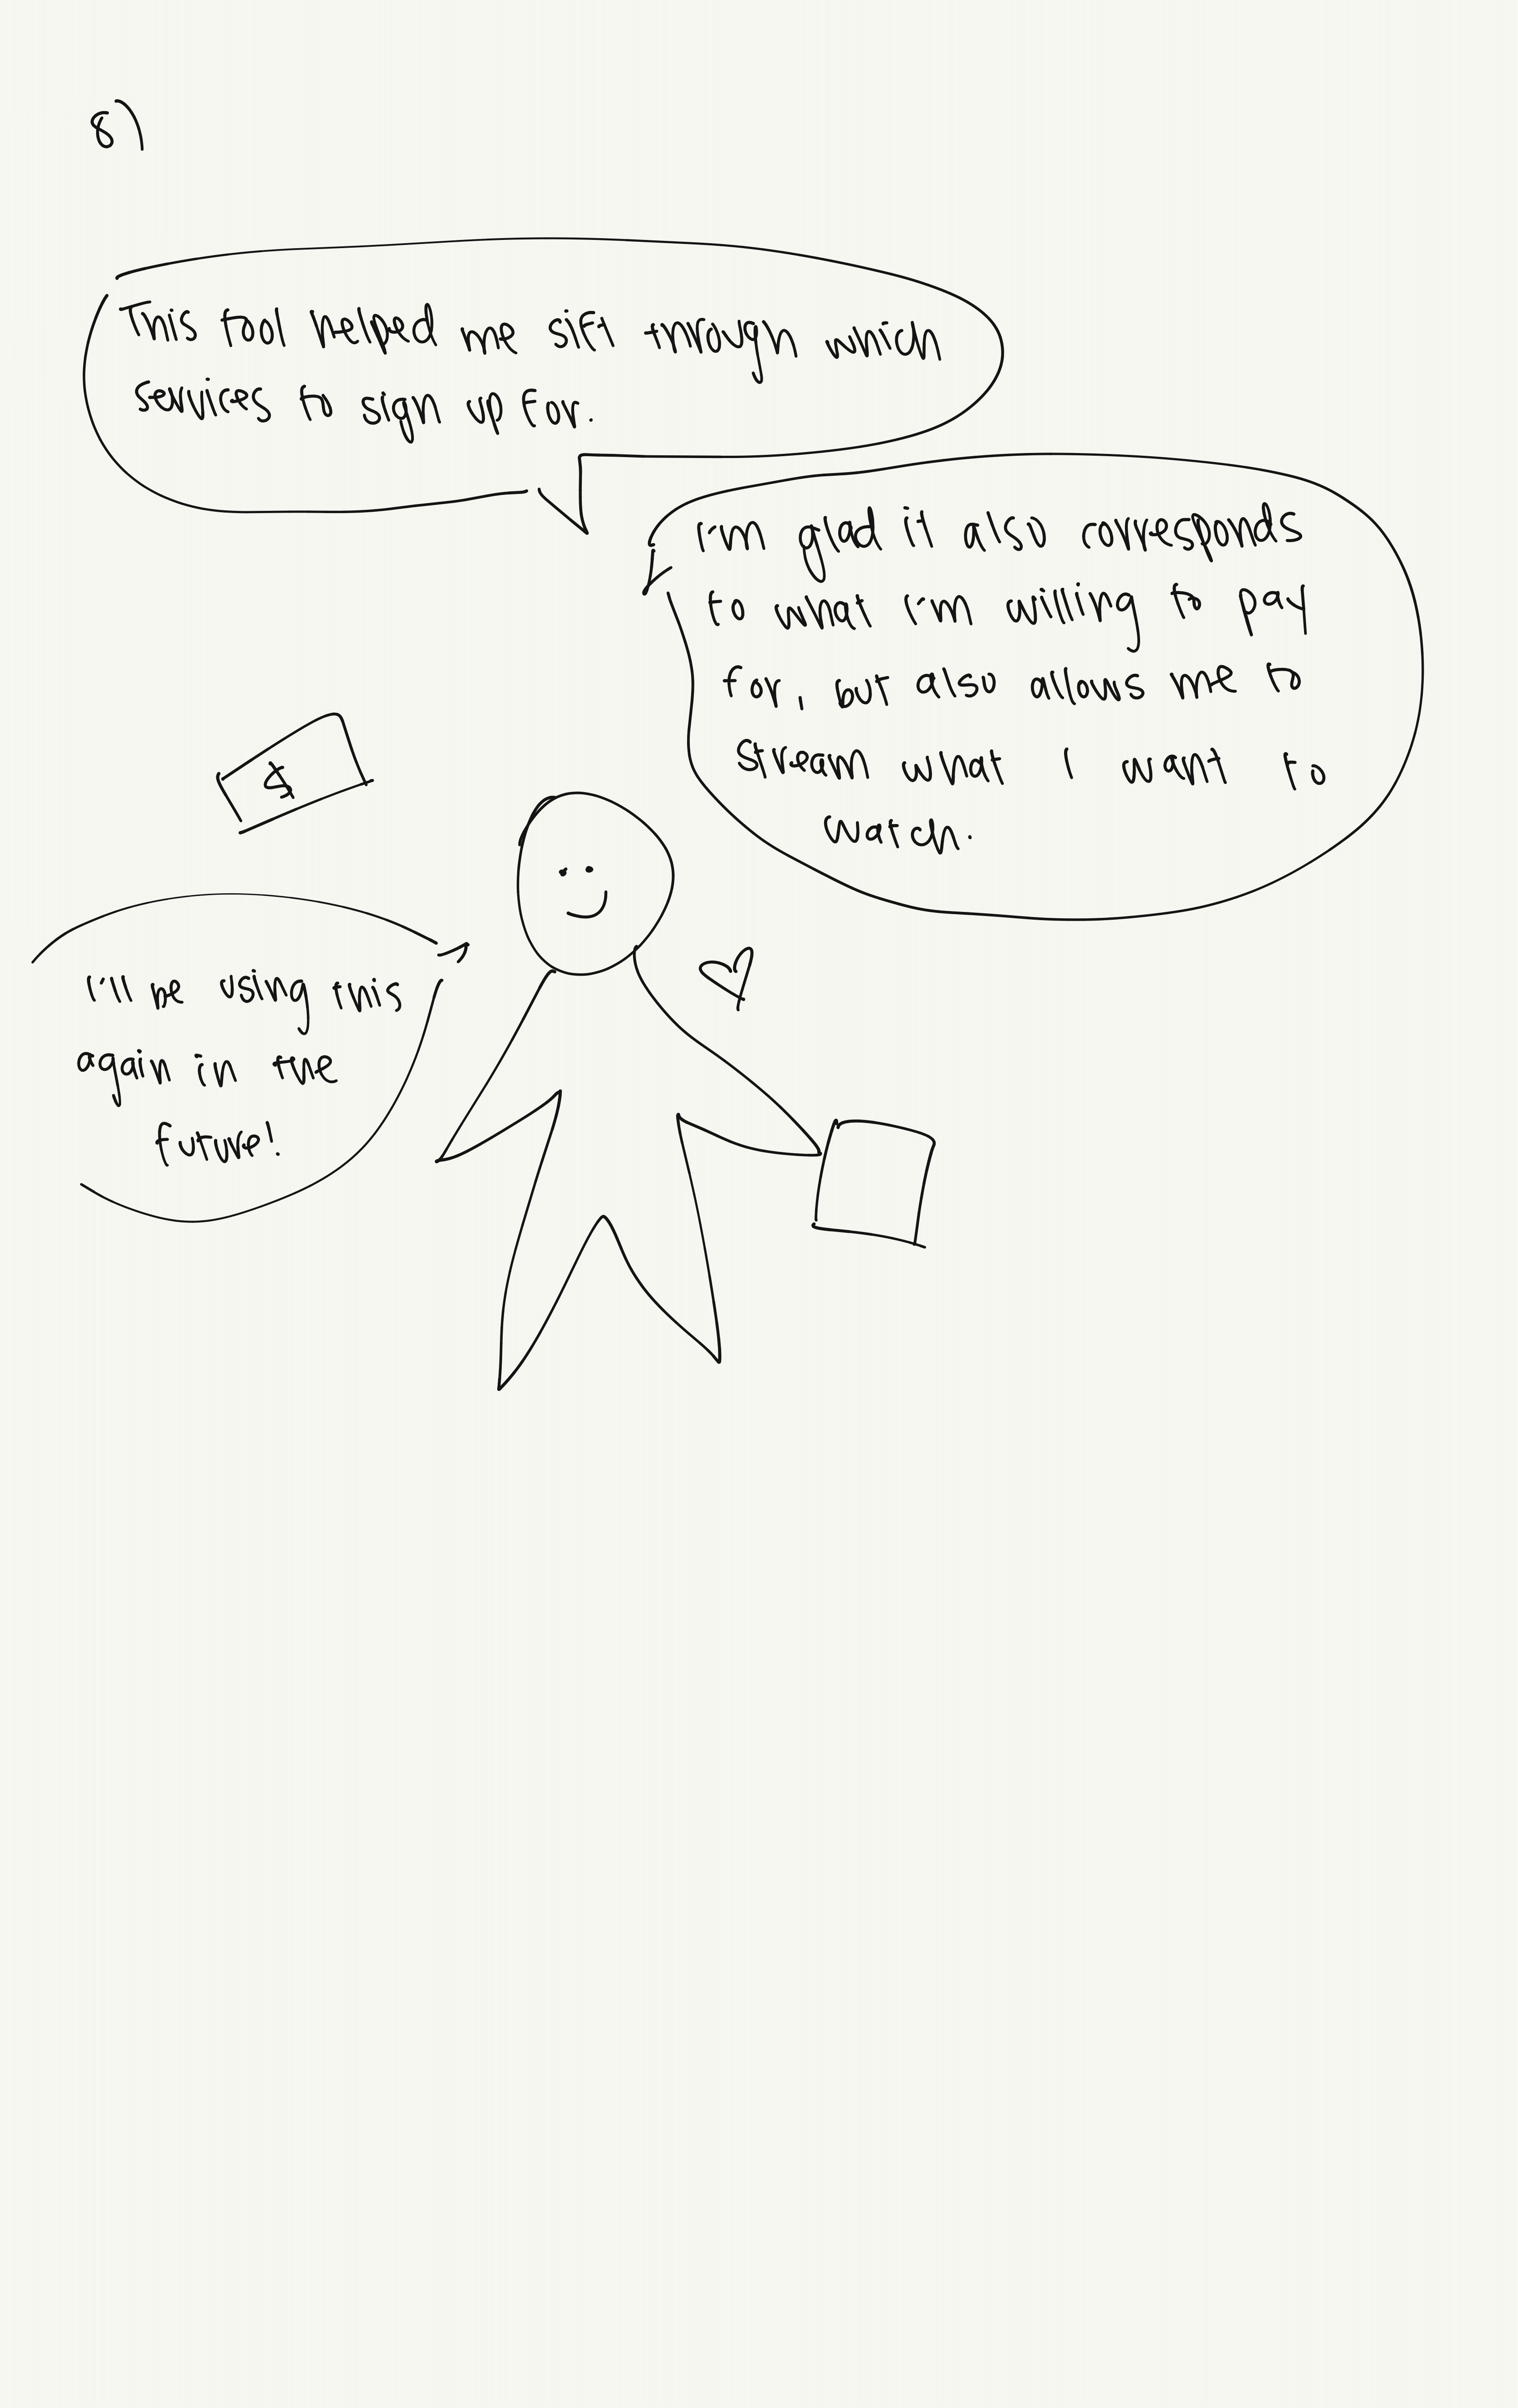 8)
This tool helped me sift through which
services to sign up for.
I'm glad it also corresponds
to what I'm willing to pay
for, but also allows me to
stream what I want to
watch.
$
I'll be using this
again in the
future!